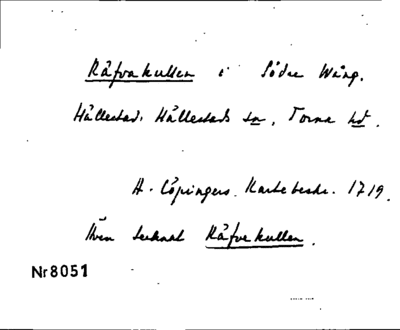 Råfvakullen i Södre Wång.
Hällestad, Hällestads sn, Torna hd.
H. Löpingers Kartebeskr. 1719.
Även tecknat Råfvekullen.
Nr 8051